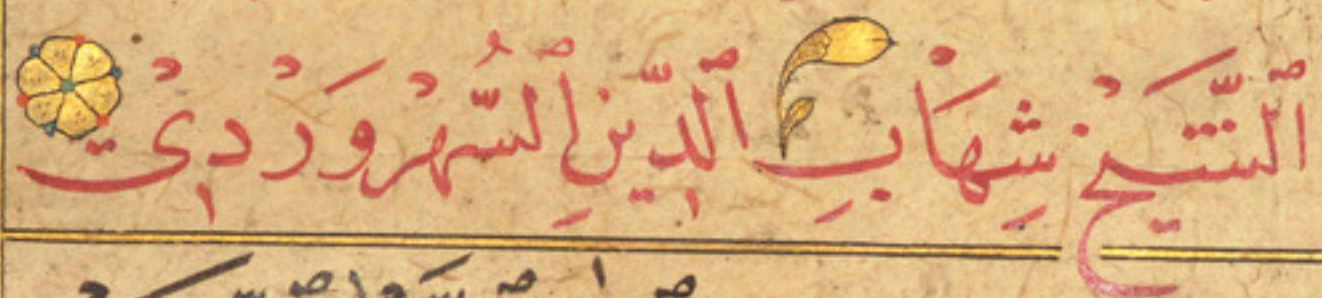 ٱلشَّيْخْ شِهَابْ ٱلدِّينِ ٱلسُّهْرَوَرْدِيْ